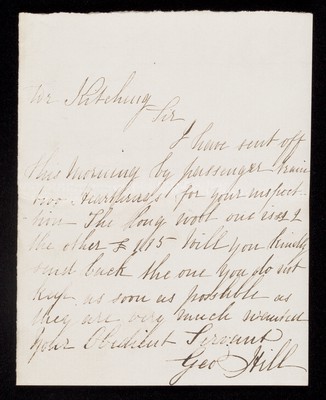 Mr Kitching
Sir
I have sent off
this Morning by passenger train
two for your inspect
tion The long one is
the other 15 Will you kindly
send back the one you do not
keep as soon as possible as
they are very much wanted
your Obedient Servant
Geo Hill